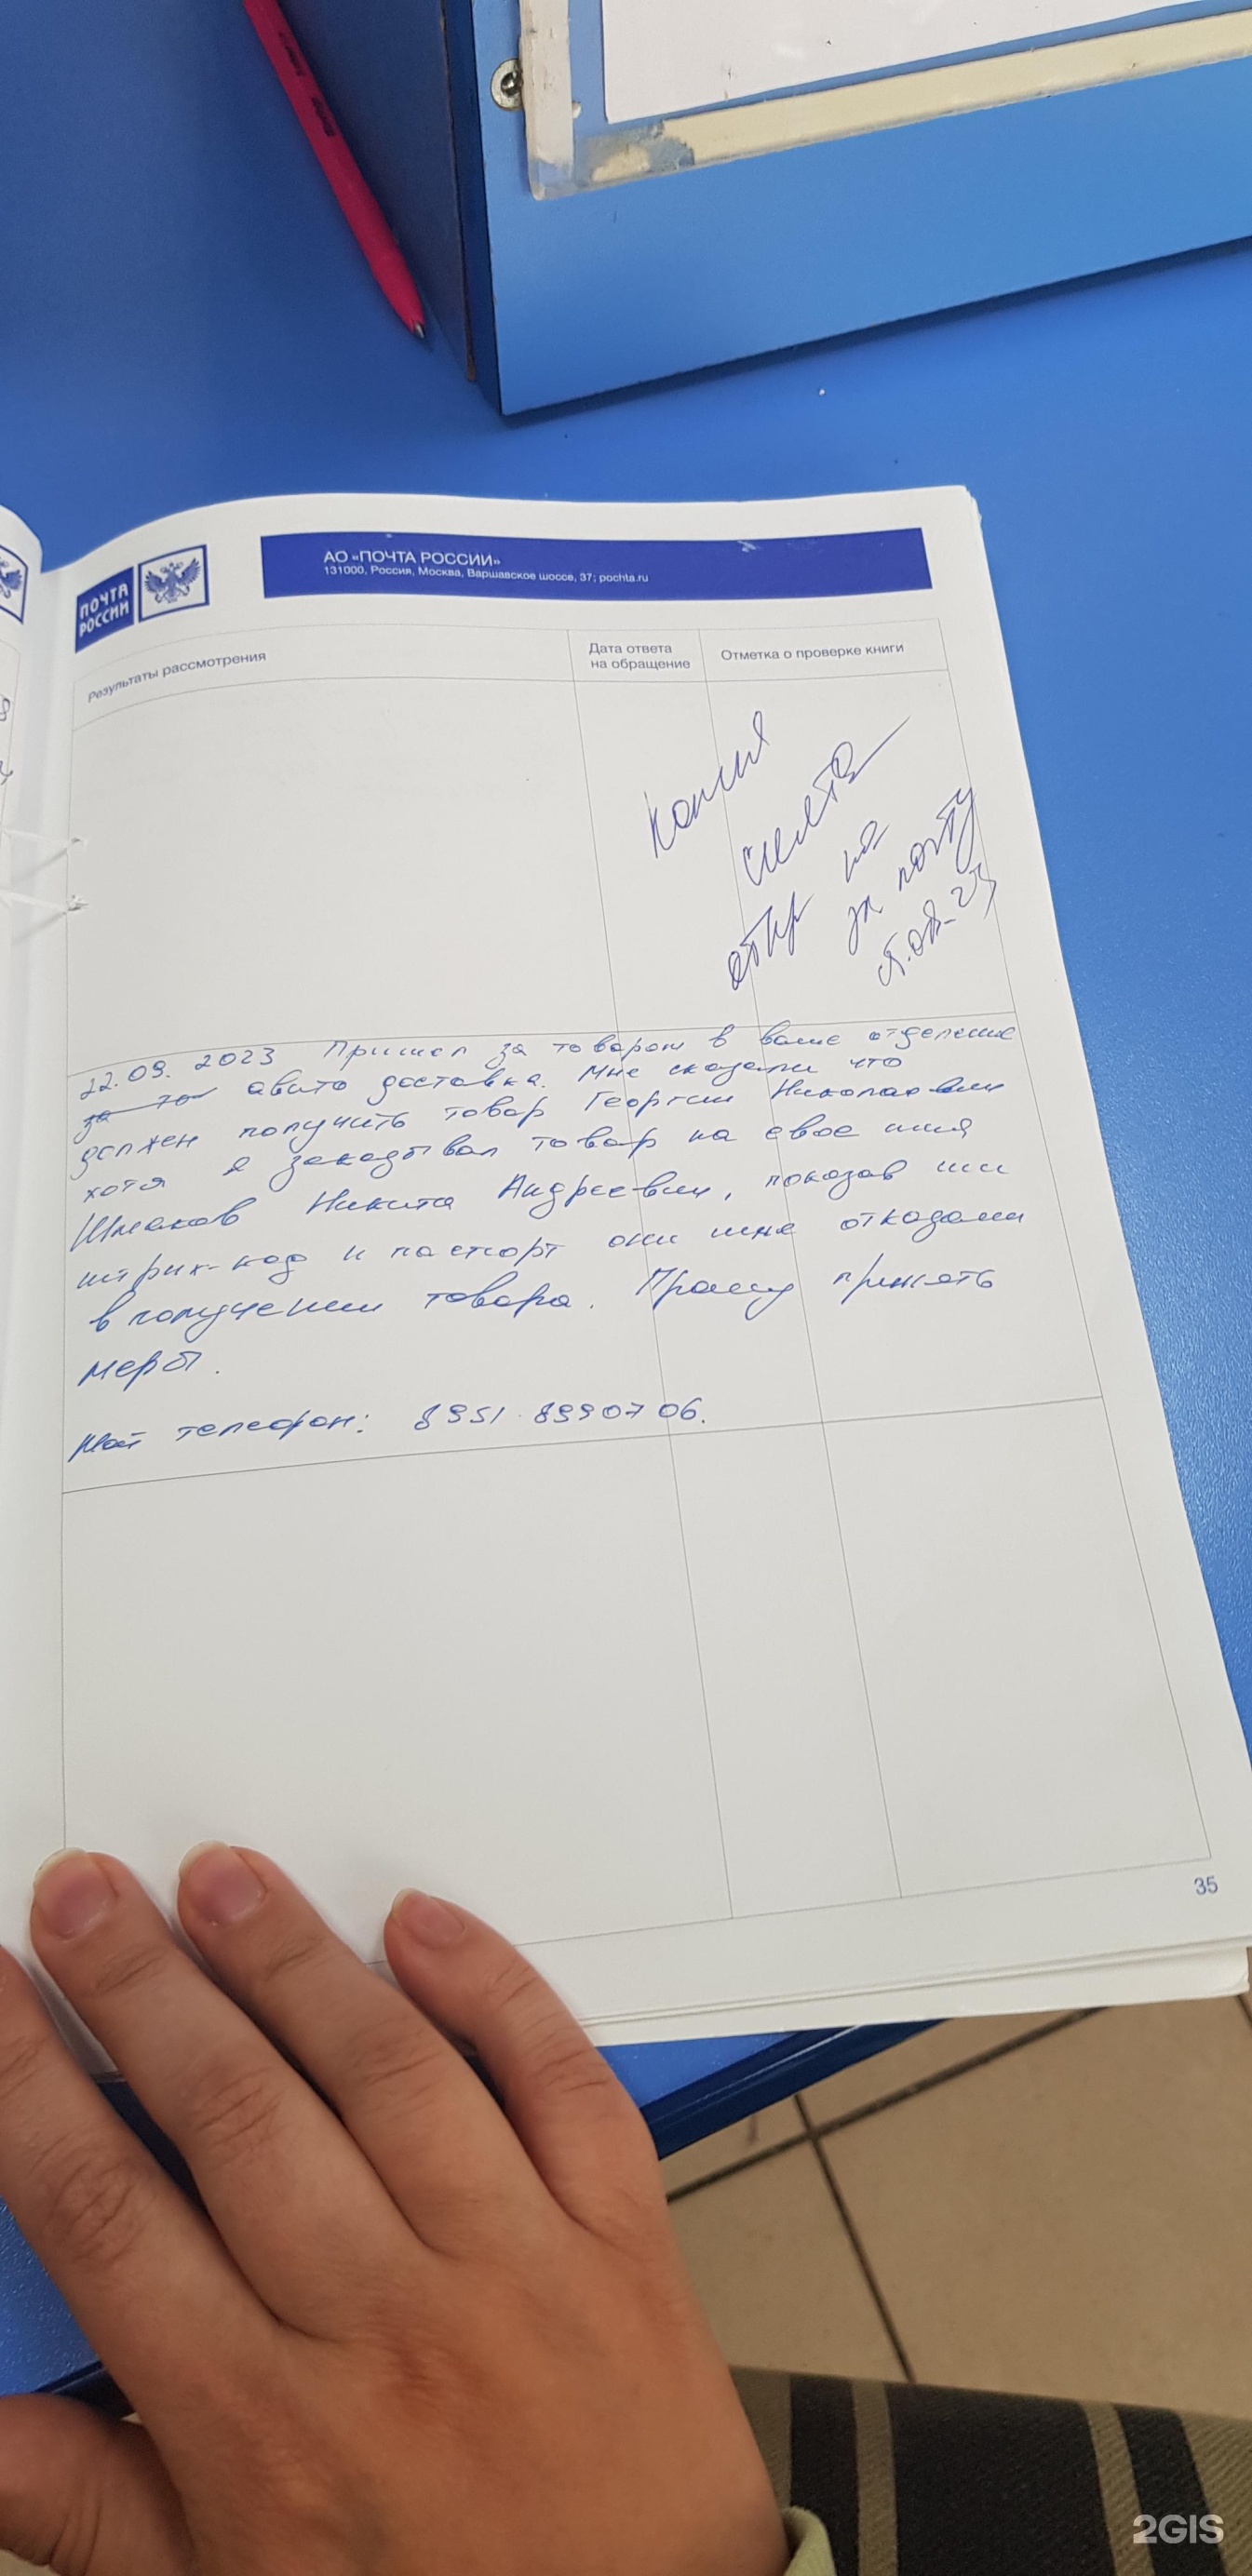 ПОЧТА
РОССИИ
АО «ПОЧТА РОССИИ»
131000, Россия, Москва, Варшавское шоссе, 37; pochta.ru
Результаты рассмотрения
Дата ответа
на обращение
Отметка о проверке книги
Копия
снята
отпр на
эл почту
22.09.2023 Пришел за товаром в ваше отделение
за то авито доставка. Мне сказали что
должен получить товар Георгии Николаевич
хотя я заказывал товар на свое имя
Шмаков Никита Андреевич, показав им
штрих-код и паспорт они мне отказали
в получении товара. Прошу принять
меры.
Мой телефон: 8951 8990706.
35
2GIS